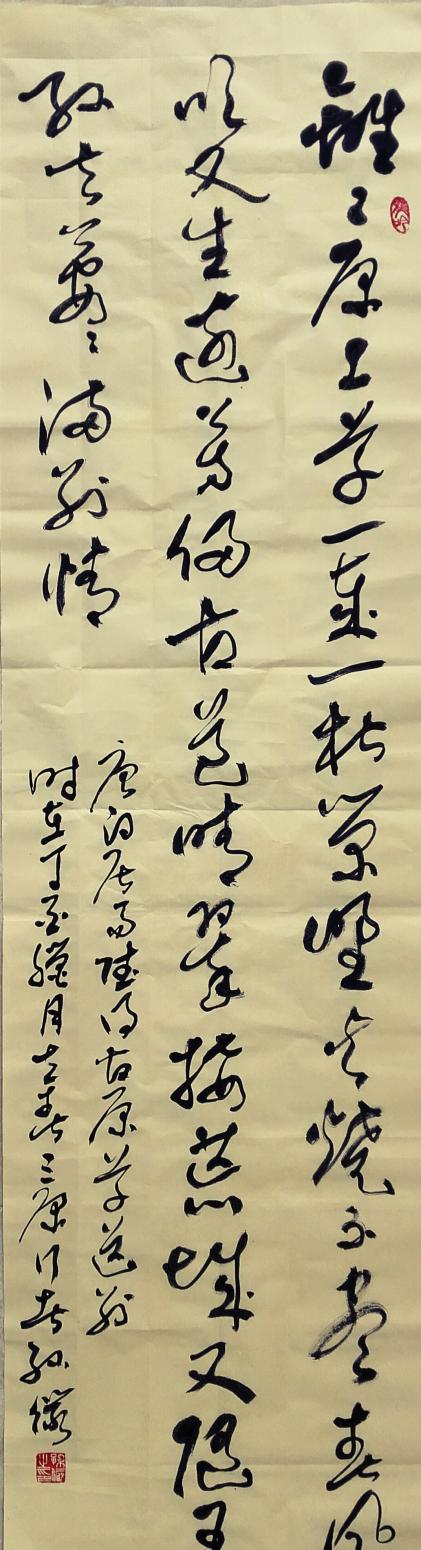 離〻原上草一歲一枯榮野火燒不盡春風
吹又生遠芳侵古道晴翠接荒城又王
孫去萋〻滿別情
唐白居易賦得古原草送別
時在丁酉臘月立春三原行者孫